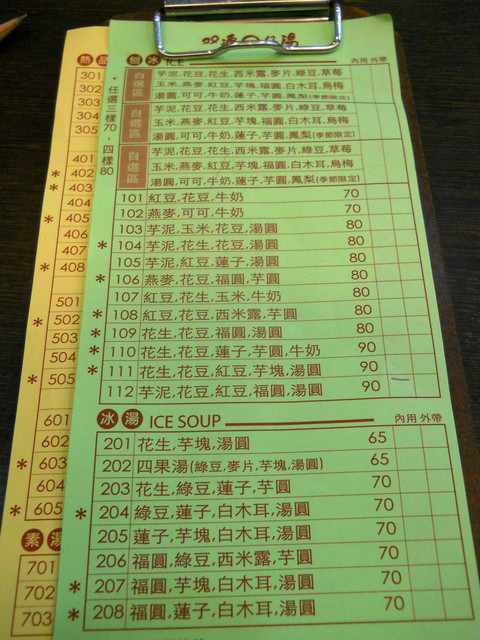 湯
刨冰 ICE 內用 外帶
* 任選三樣70，四樣80
自選區 芋泥,花豆,花生,西米露,麥片,綠豆,草莓
玉米,燕麥,紅豆,芋塊,福圓,白木耳,烏梅
湯圓,可可,牛奶,蓮子,芋圓,鳳梨(季節限定)
自選區 芋泥,花豆,花生,西米露,麥片,綠豆,草莓
玉米,燕麥,紅豆,芋塊,福圓,白木耳,烏梅
湯圓,可可,牛奶,蓮子,芋圓,鳳梨(季節限定)
自選區 芋泥,花豆,花生,西米露,麥片,綠豆,草莓
玉米,燕麥,紅豆,芋塊,福圓,白木耳,烏梅
湯圓,可可,牛奶,蓮子,芋圓,鳳梨(季節限定)
101 紅豆,花豆,牛奶 70
102 燕麥,可可,牛奶 70
103 芋泥,玉米,花豆,湯圓 80
* 104 芋泥,花生,花豆,湯圓 80
105 芋泥,紅豆,蓮子,湯圓 80
* 106 燕麥,花豆,福圓,芋圓 80
107 紅豆,花生,玉米,牛奶 80
* 108 紅豆,花豆,西米露,芋圓 80
* 109 花生,花豆,福圓,湯圓 80
* 110 花生,花豆,蓮子,芋圓,牛奶 90
* 111 花生,花豆,紅豆,芋塊,湯圓 90
112 芋泥,花豆,紅豆,福圓,湯圓 90
冰湯 ICE SOUP 內用 外帶
201 花生,芋塊,湯圓 65
202 四果湯(綠豆,麥片,芋塊,湯圓) 65
203 花生,綠豆,蓮子,芋圓 70
* 204 綠豆,蓮子,白木耳,湯圓 70
205 蓮子,芋塊,白木耳,湯圓 70
206 福圓,綠豆,西米露,芋圓 70
* 207 福圓,芋塊,白木耳,湯圓 70
* 208 福圓,蓮子,白木耳,湯圓 70
熱品
301
302
303
304
305
401
* 402
* 403
404
* 405
406
407
* 408
501
* 502
503
504
* 505
601
602
* 603
604
* 605
素湯
701
702
703